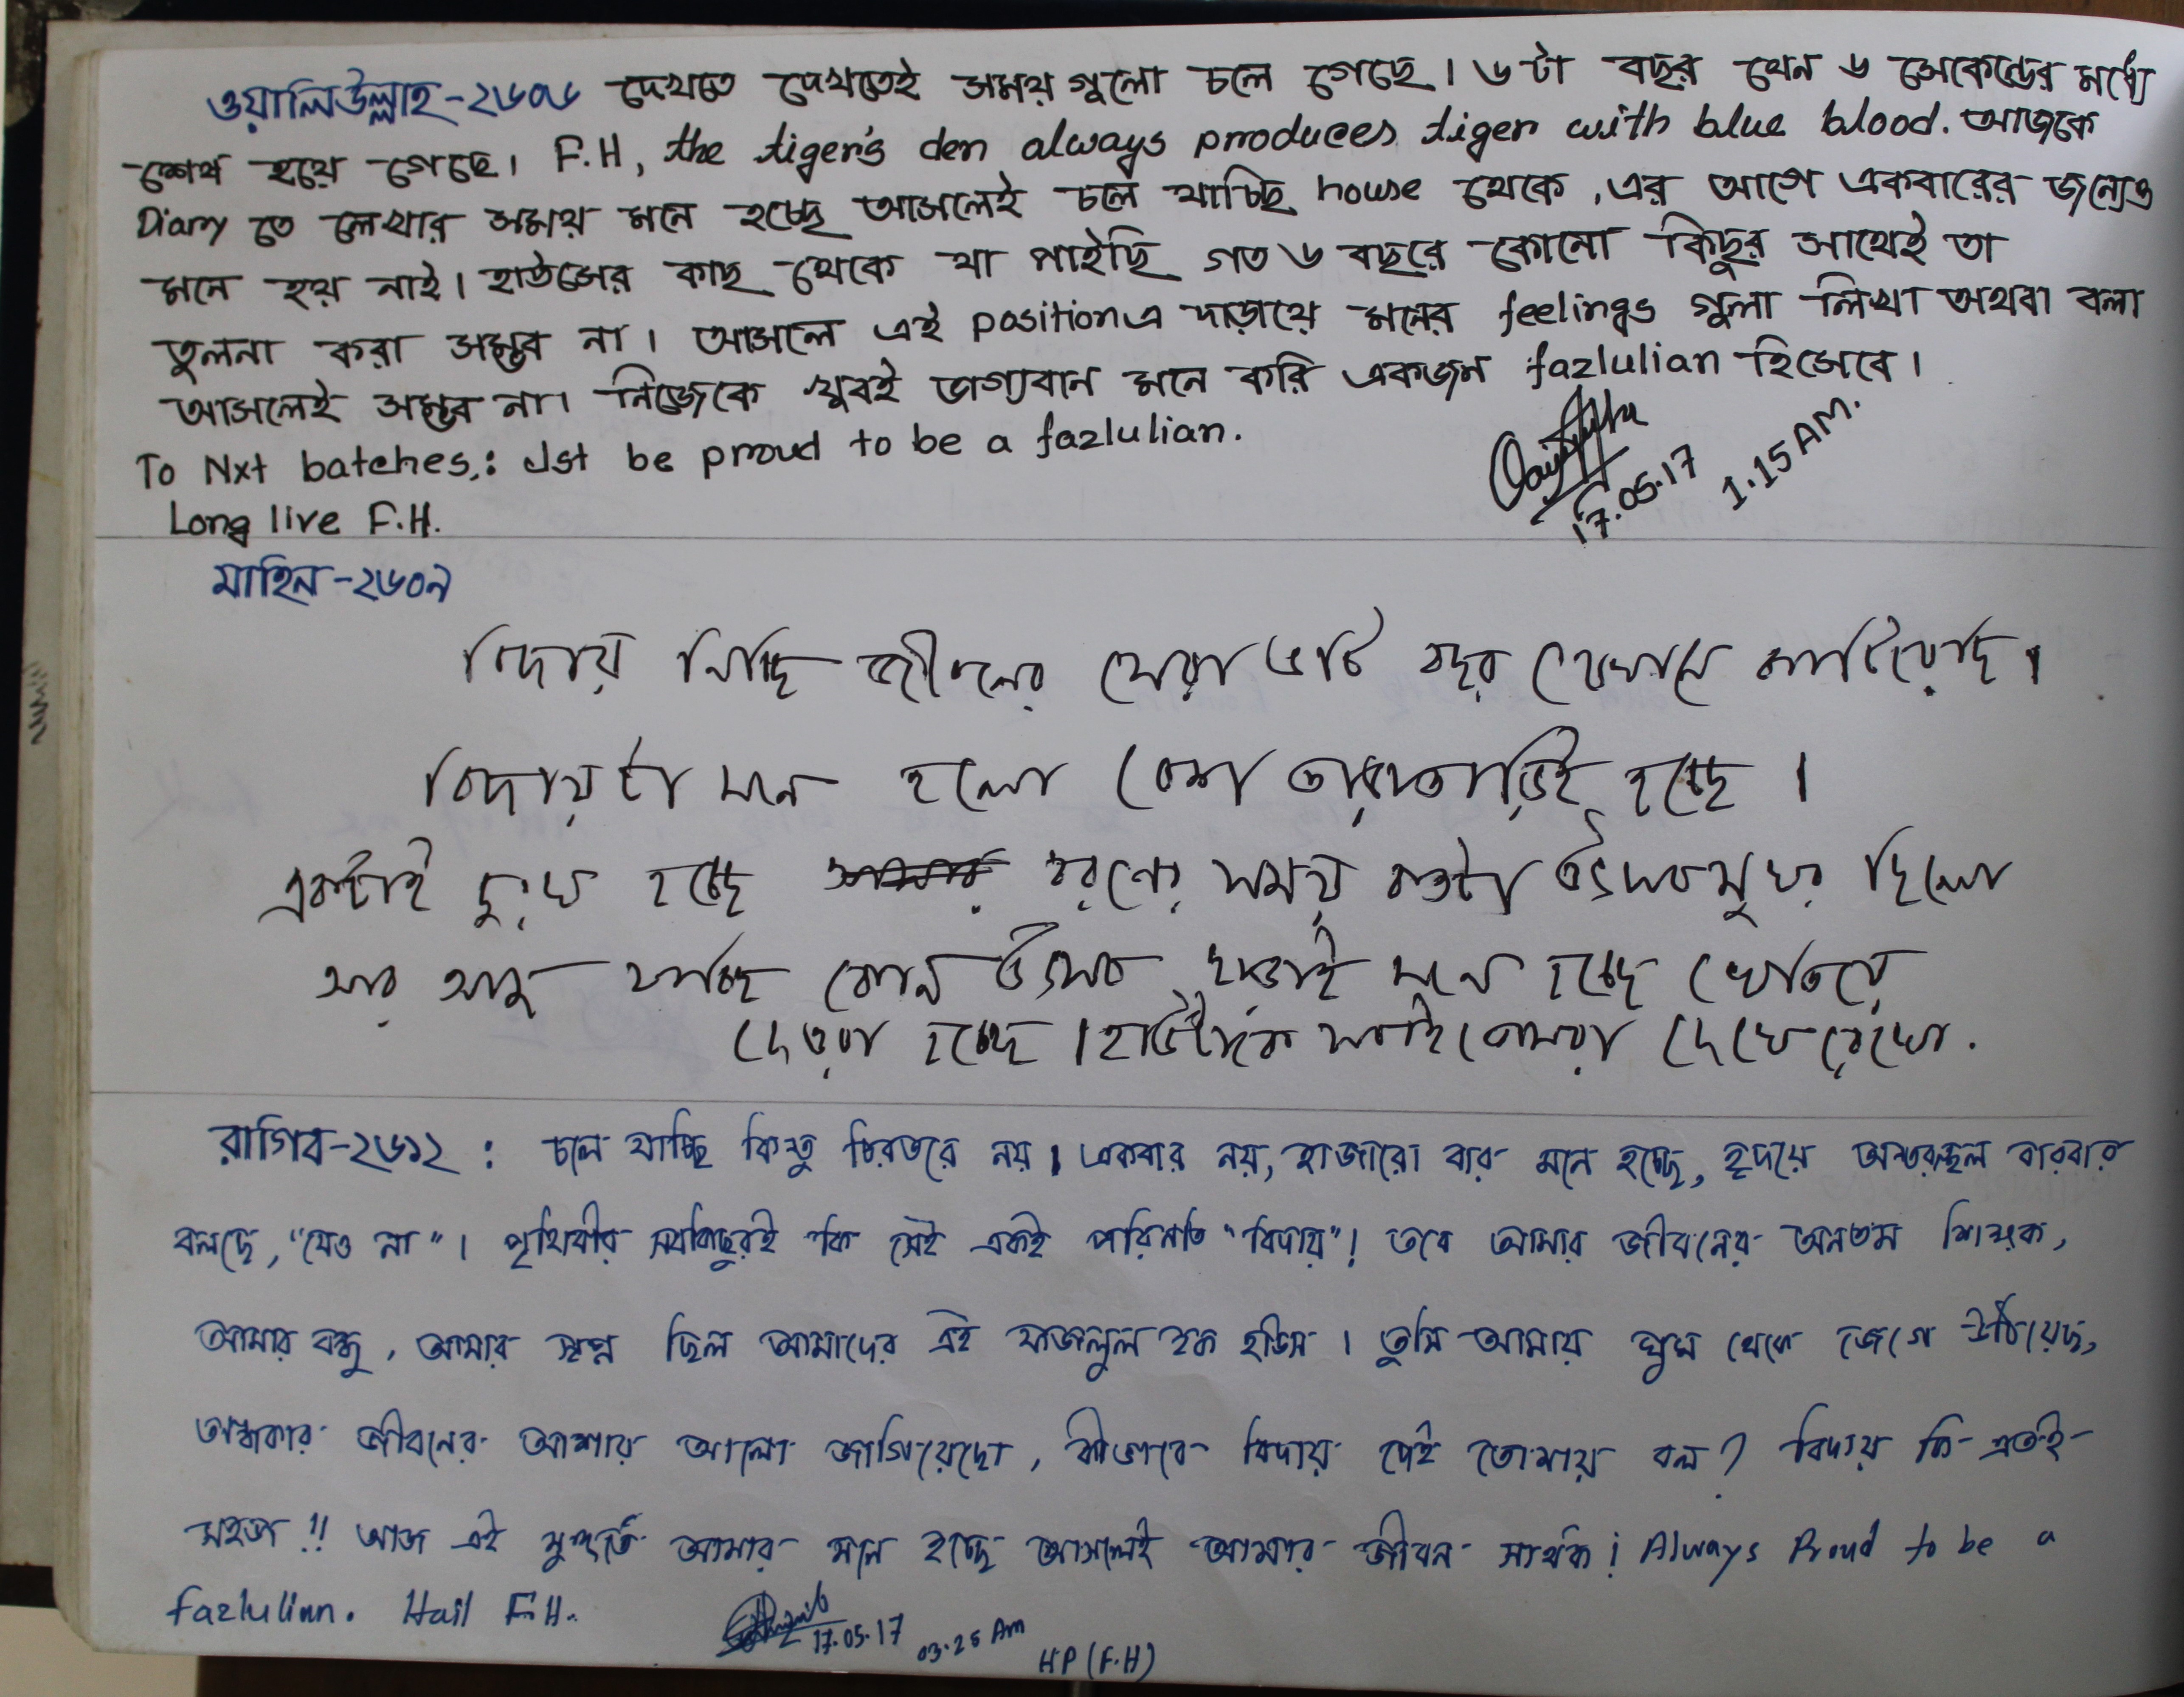 ওয়ালিউল্লাহ-২৬০৬ দেখতে দেখতেই সময় গুলো চলে গেছে। ৬টা বছর যেন ৬ সেকেন্ডের মধ্যে
শেষ হয়ে গেছে। F.H, the tiger's den always produces tiger with blue blood. আজকে
Diary তে লেখার সময় মনে হচ্ছে আসলেই চলে যাচ্ছি house থেকে, এর আগে একবারের জন্যেও
মনে হয় নাই। হাউসের কাছ থেকে যা পাইছি গত ৬ বছরে কোনো কিছুর সাথেই তা
তুলনা করা সম্ভব না। আসলে এই position এ দাড়ায়ে মনের feelings গুলা লিখা অথবা বলা
আসলেই সম্ভব না। নিজেকে খুবই ভাগ্যবান মনে করি একজন fazlulian হিসেবে।
To Nxt batches,: Jst be proud to be a fazlulian.
Long live F.H.
17.05.17 1.15 AM.
মাহিন-২৬০৭
বিদায় নিচ্ছি জীবনের সেরা ৬টি বছর যেখানে কাটিয়েছি।
বিদায়টা মনে হলো বেশ তারাতারিই হচ্ছে।
একটাই দুঃখ হচ্ছে বরণের সময় কতটা উৎসবমুখর ছিলো
আর আজ যাচ্ছি কোন উৎসব ছাড়াই মনে হচ্ছে খেদিয়ে
দেওয়া হচ্ছে। হাউসকে সবাই তোমরা দেখে রেখো.
রাগিব-২৬১২ : চলে যাচ্ছি কিন্তু চিরতরে নয়। একবার নয়, হাজারো বার মনে হচ্ছে, হৃদয়ে অন্তরস্থল বারবার
বলছে, "যেও না"। পৃথিবীর সবকিছুরই কি সেই একই পরিণতি "বিদায়"! তবে আমার জীবনের অন্যতম শিক্ষক,
আমার বন্ধু, আমার স্বপ্ন ছিল আমাদের এই ফজলুল হক হাউস। তুমি আমায় ঘুম থেকে জেগে উঠিয়েছ,
অন্ধকার জীবনের আশার আলো জাগিয়েছো, কীভাবে বিদায় দেই তোমায় বল? বিদায় কি এতই
সহজ!! আজ এই মুহূর্তে আমার মনে হচ্ছে আসলেই আমার জীবন সার্থক! Always Proud to be a
fazlulian. Hail F.H.
17.05.17 03.25 Am
HP (F.H)